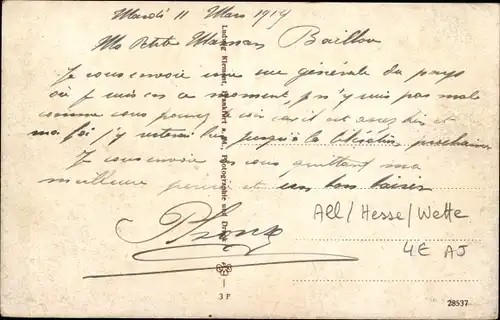 Mardi 11 Mars 1919
Ma Petite Maman Baillon
Je vous envoie une vue générale du pays
où je suis en ce moment, je n'y suis pas mal
comme vous pouvez voir car il est assez
ma foi j'y resterai bien jusqu'à la libération prochaine
Je vous envoie vous quittant ma
meilleure pensée et un bon baiser
Ludwig Klement, Frankfurt a. M., Photographie und Druck
3 F
All/Hesse/Wette
4E AJ
28537